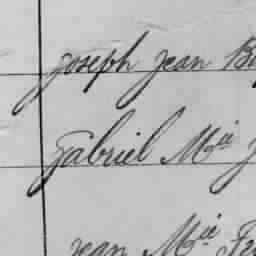 joseph jean
gabriel Mie
jean Mie